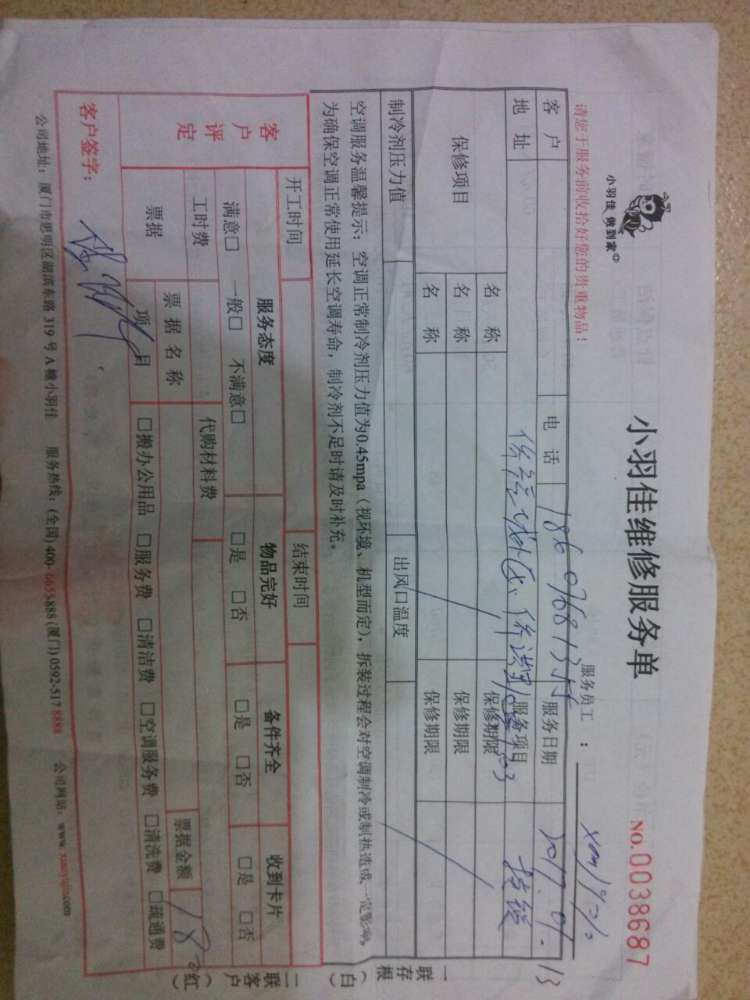 小羽佳 做到家
小羽佳维修服务单
NO.0038687
请您于服务前收拾好您的贵重物品！
服务员工：
客户
电话
服务日期
2017.07.13
地址
服务项目
保修项目
名称
保修期限
名称
保修期限
名称
保修期限
制冷剂压力值
出风口温度
空调服务温馨提示：空调正常制冷剂压力值为0.45mpa（视环境、机型而定），拆装过程会对空调制冷或制热造成一定影响，
为确保空调正常使用延长空调寿命，制冷剂不足时请及时补充。
开工时间
结束时间
客户评定
服务态度
物品完好
备件齐全
收到卡片
满意□ 一般□ 不满意□
□是 □否
□是 □否
□是 □否
工时费
代购材料费
票据
票据名称
票据金额
项目
□搬办公用品 □服务费 □清洁费 □空调服务费 □清洗费 □疏通费
客户签字：
公司地址：厦门市思明区湖滨东路 319 号 A 幢小羽佳 服务热线：(全国) 400-6655-888 (厦门) 0592-517 8888 公司网站：www.xiaoyujia.com
一联存根（白）
二联客户（红）